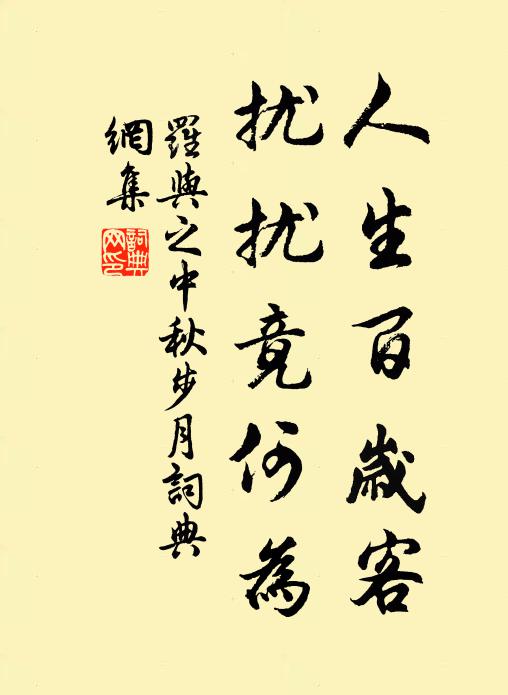 人生百歲客
扰扰竟何為
羅與之中秋步月詞典
網集
詞典
网印